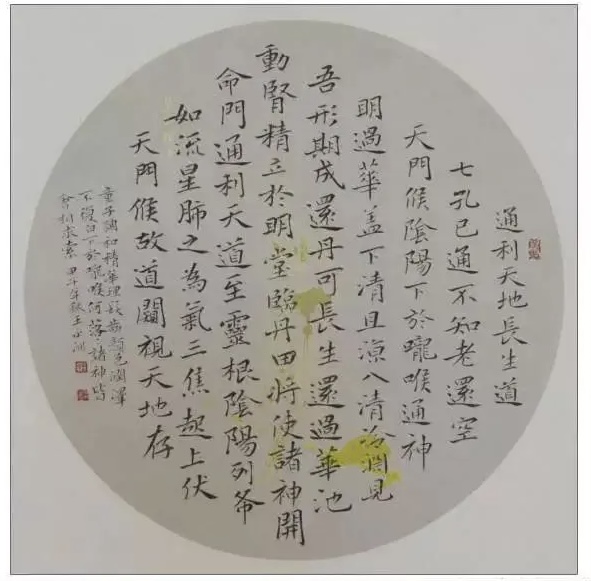 通利天地長生道
七孔已通不知老還空
天門候陰陽下於嚨喉通神
明過華蓋下清且涼入清泠淵見
吾形期成還丹可長生還過華池
動腎精立於明堂臨丹田將使諸神開
命門通利天道至靈根陰陽列布
如流星肺之為氣三焦起上伏
天門候故道闚視天地存
童子調和精華理髮齒顏色潤澤
不復白下於嚨喉何落落諸神皆
會相求索 甲午年秋王小